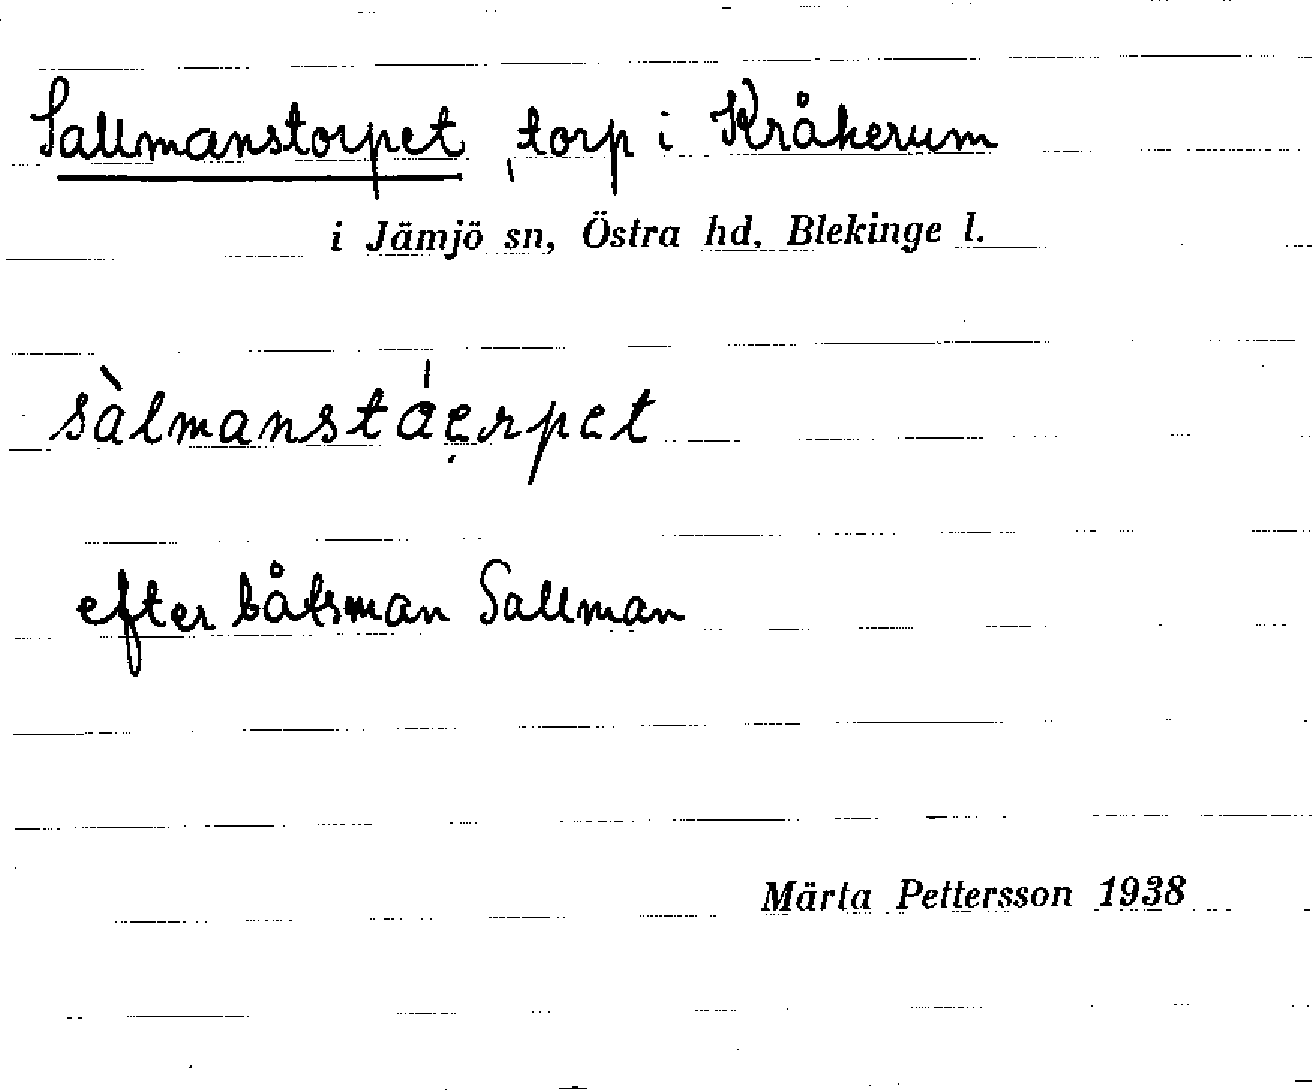 Sallmanstorpet, torp i Kråkerum
i Jämjö sn, Östra hd, Blekinge l.
sàlmanstáe̩rpet
efter båtsman Sallman
Märta Pettersson 1938